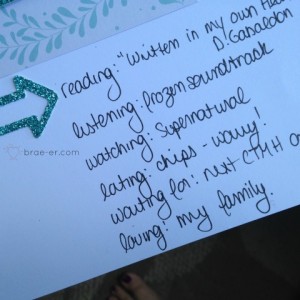 reading: "Written in my own
D. Gabaldon
listening: frozen soundtrack
watching: Supernatural
eating: chips - wavy!
waiting for: next CTMH
loving: my family.
brae-er.com